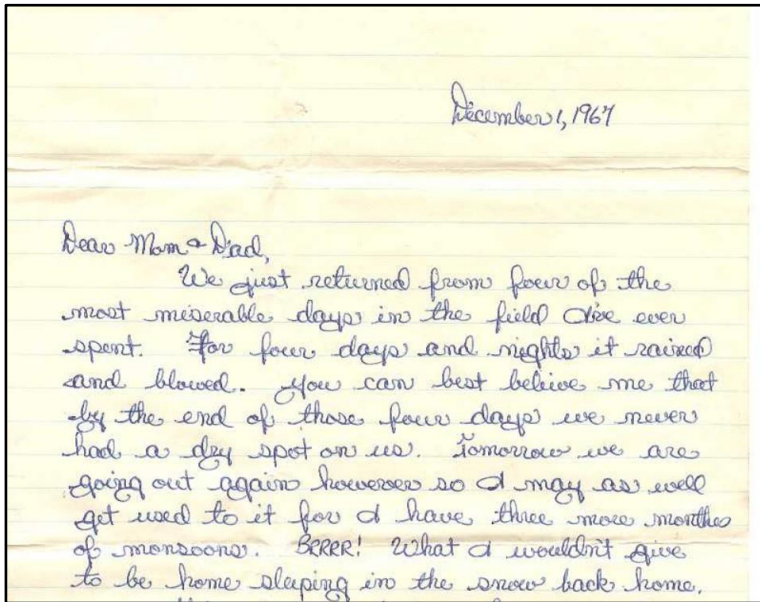 December 1, 1967
Dear Mom & Dad,
We just returned from four of the
most miserable days in the field I've ever
spent. For four days and nights it rained
and blowed. You can best belive me that
by the end of those four days we never
had a dry spot on us. Tomorrow we are
going out again however so I may as well
get used to it for I have three more months
of monsoons. BRRRR! What I wouldn't give
to be home sleeping in the snow back home.